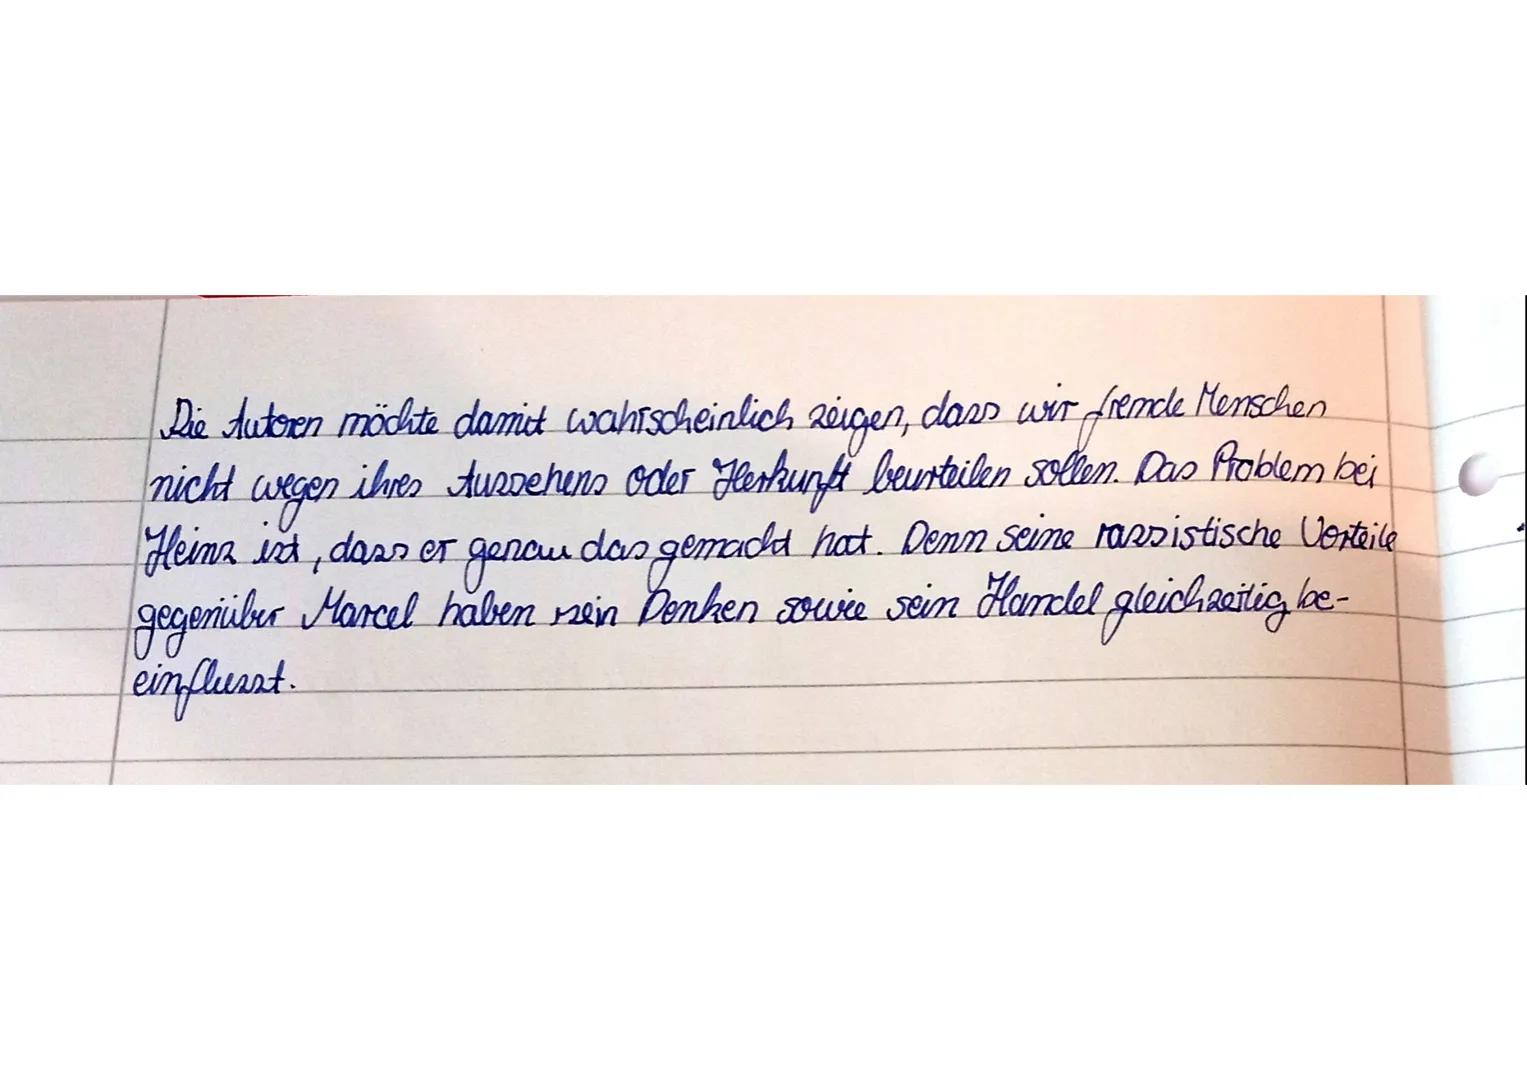 Die Autoren möchte damit wahrscheinlich zeigen, dass wir fremde Menschen
nicht wegen ihres Aussehens oder Herkunft beurteilen sollen. Das Problem bei
Heinz ist, dass er genau das gemacht hat. Denn seine rassistische Vorteile
gegenüber Marcel haben sein Denken sowie sein Handel gleichzeitig be-
einflusst.